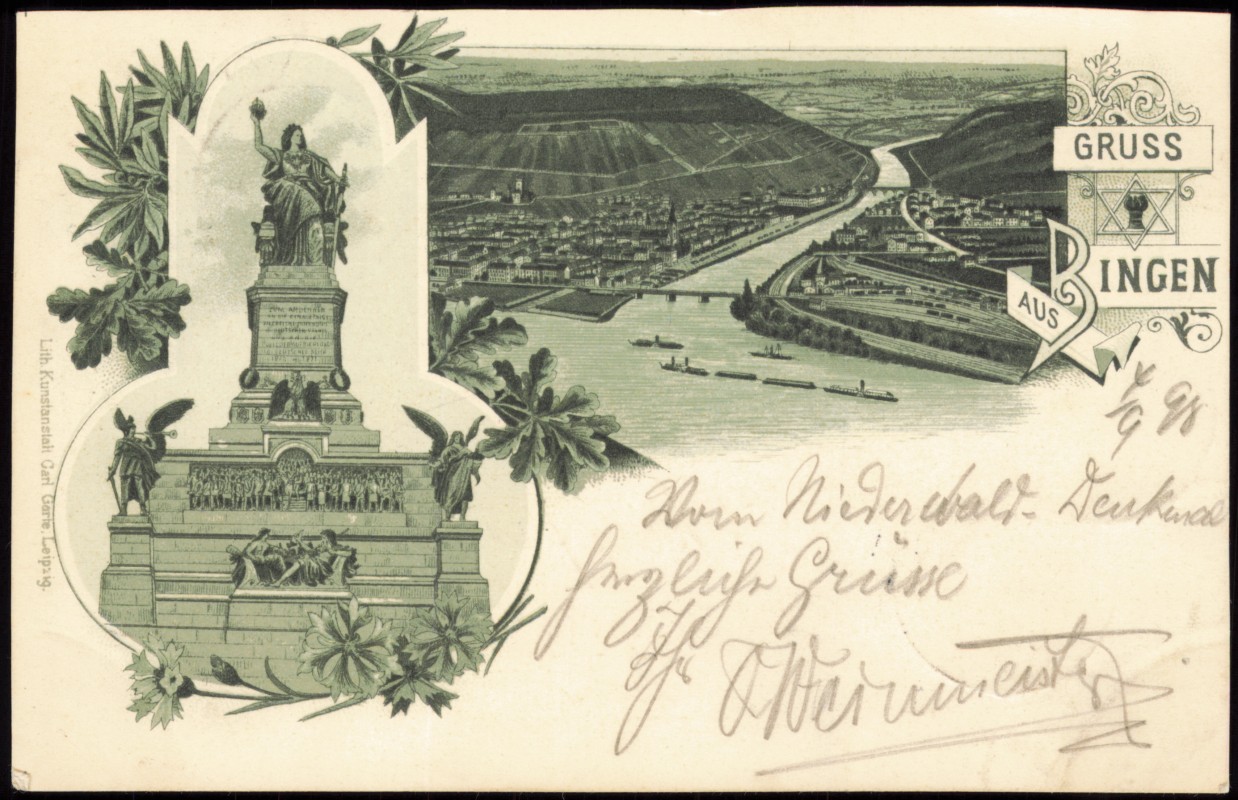 GRUSS
AUS
BINGEN
4/9 98
Vom Niederwald-Denkmal
herzliche Grüsse
Ihr
Weinmeister
Lith. Kunstanstalt Carl Garte, Leipzig.